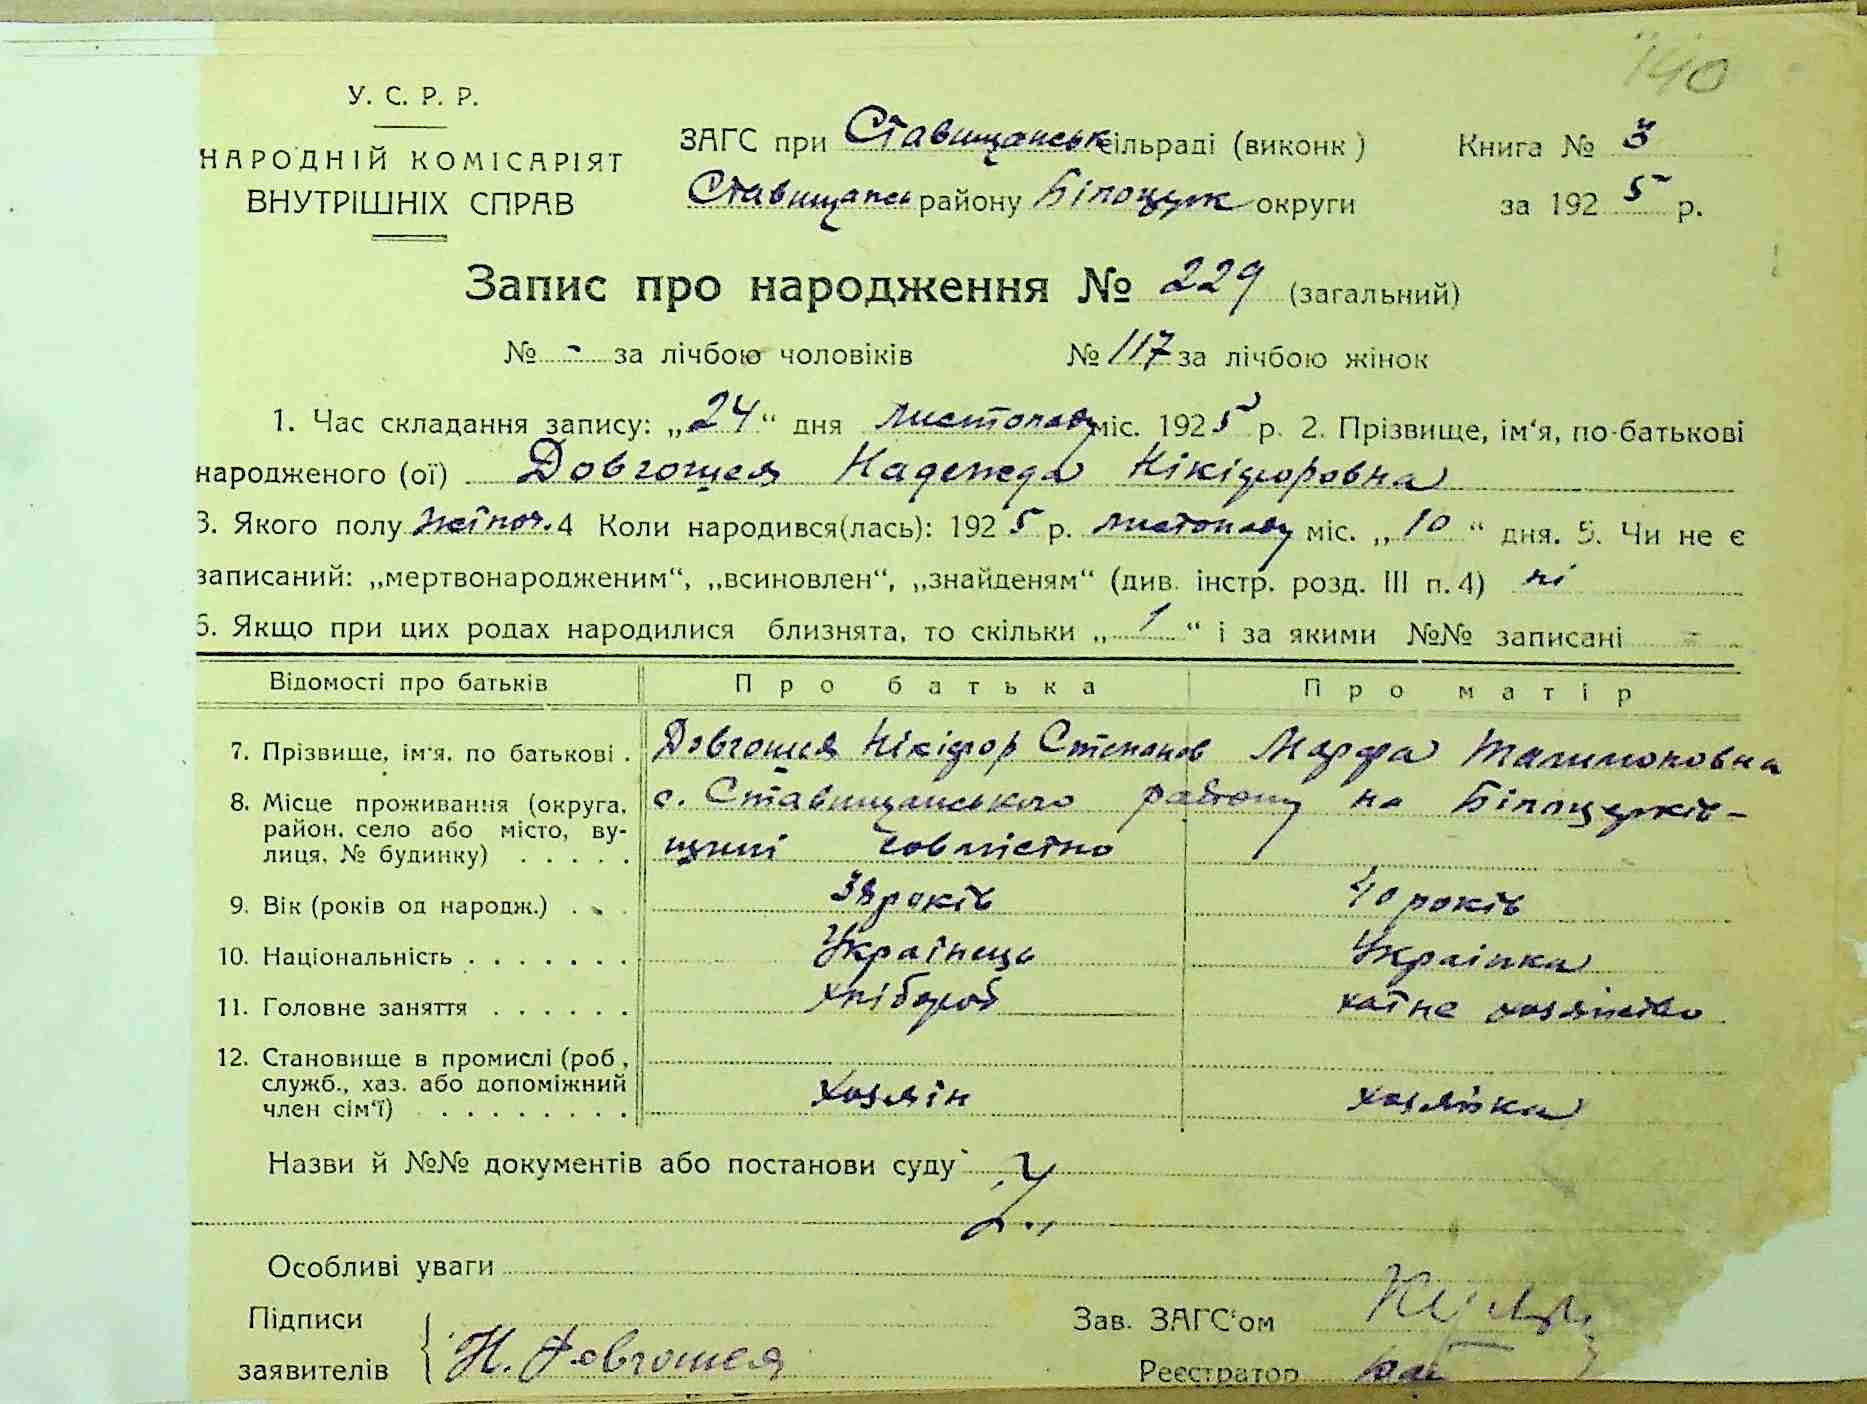 140
У. С. Р. Р.
НАРОДНІЙ КОМІСАРІЯТ
ВНУТРІШНІХ СПРАВ
ЗАГС при Ставищанськ сільраді (виконк)
Книга № 3
Ставищансь району Білоцерк округи
за 1925 р.
Запис про народження № 229 (загальний)
№ - за лічбою чоловіків № 117 за лічбою жінок
1. Час складання запису: „24“ дня листопаду міс. 1925 р. 2. Прізвище, ім‘я, по-батькові
народженого (ої) Довгошея Надежда Нікіфоровна
3. Якого полу жіноч. 4 Коли народився(лась): 1925 р. листопаду міс. „10“ дня. 5. Чи не є
записаний: „мертвонародженим“, „всиновлен“, „знайденям“ (див. інстр. розд. III п. 4) ні
6. Якщо при цих родах народилися близнята, то скільки „1“ і за якими №№ записані -
Відомості про батьків Про батька Про матір
7. Прізвище, ім‘я, по батькові . Довгошея Нікіфор Степанов Марфа
8. Місце проживання (округа, с. Ставищанського району на Білоцерків-
район, село або місто, ву-
лиця, № будинку) . . . . . щині совмістно
9. Вік (років од народж.) . . . 38 років 40 років
10. Національність . . . . . . . Українець Українка
11. Головне заняття . . . . . . хлібороб хатне хозяйство
12. Становище в промислі (роб.,
служб., хаз. або допоміжний хозяін хозяйка
член сім‘ї) . . . . . . . . .
Назви й №№ документів або постанови суду
Особливі уваги
Підписи
Зав. ЗАГС‘ом
заявителів Н. Довгошея
Реєстратор